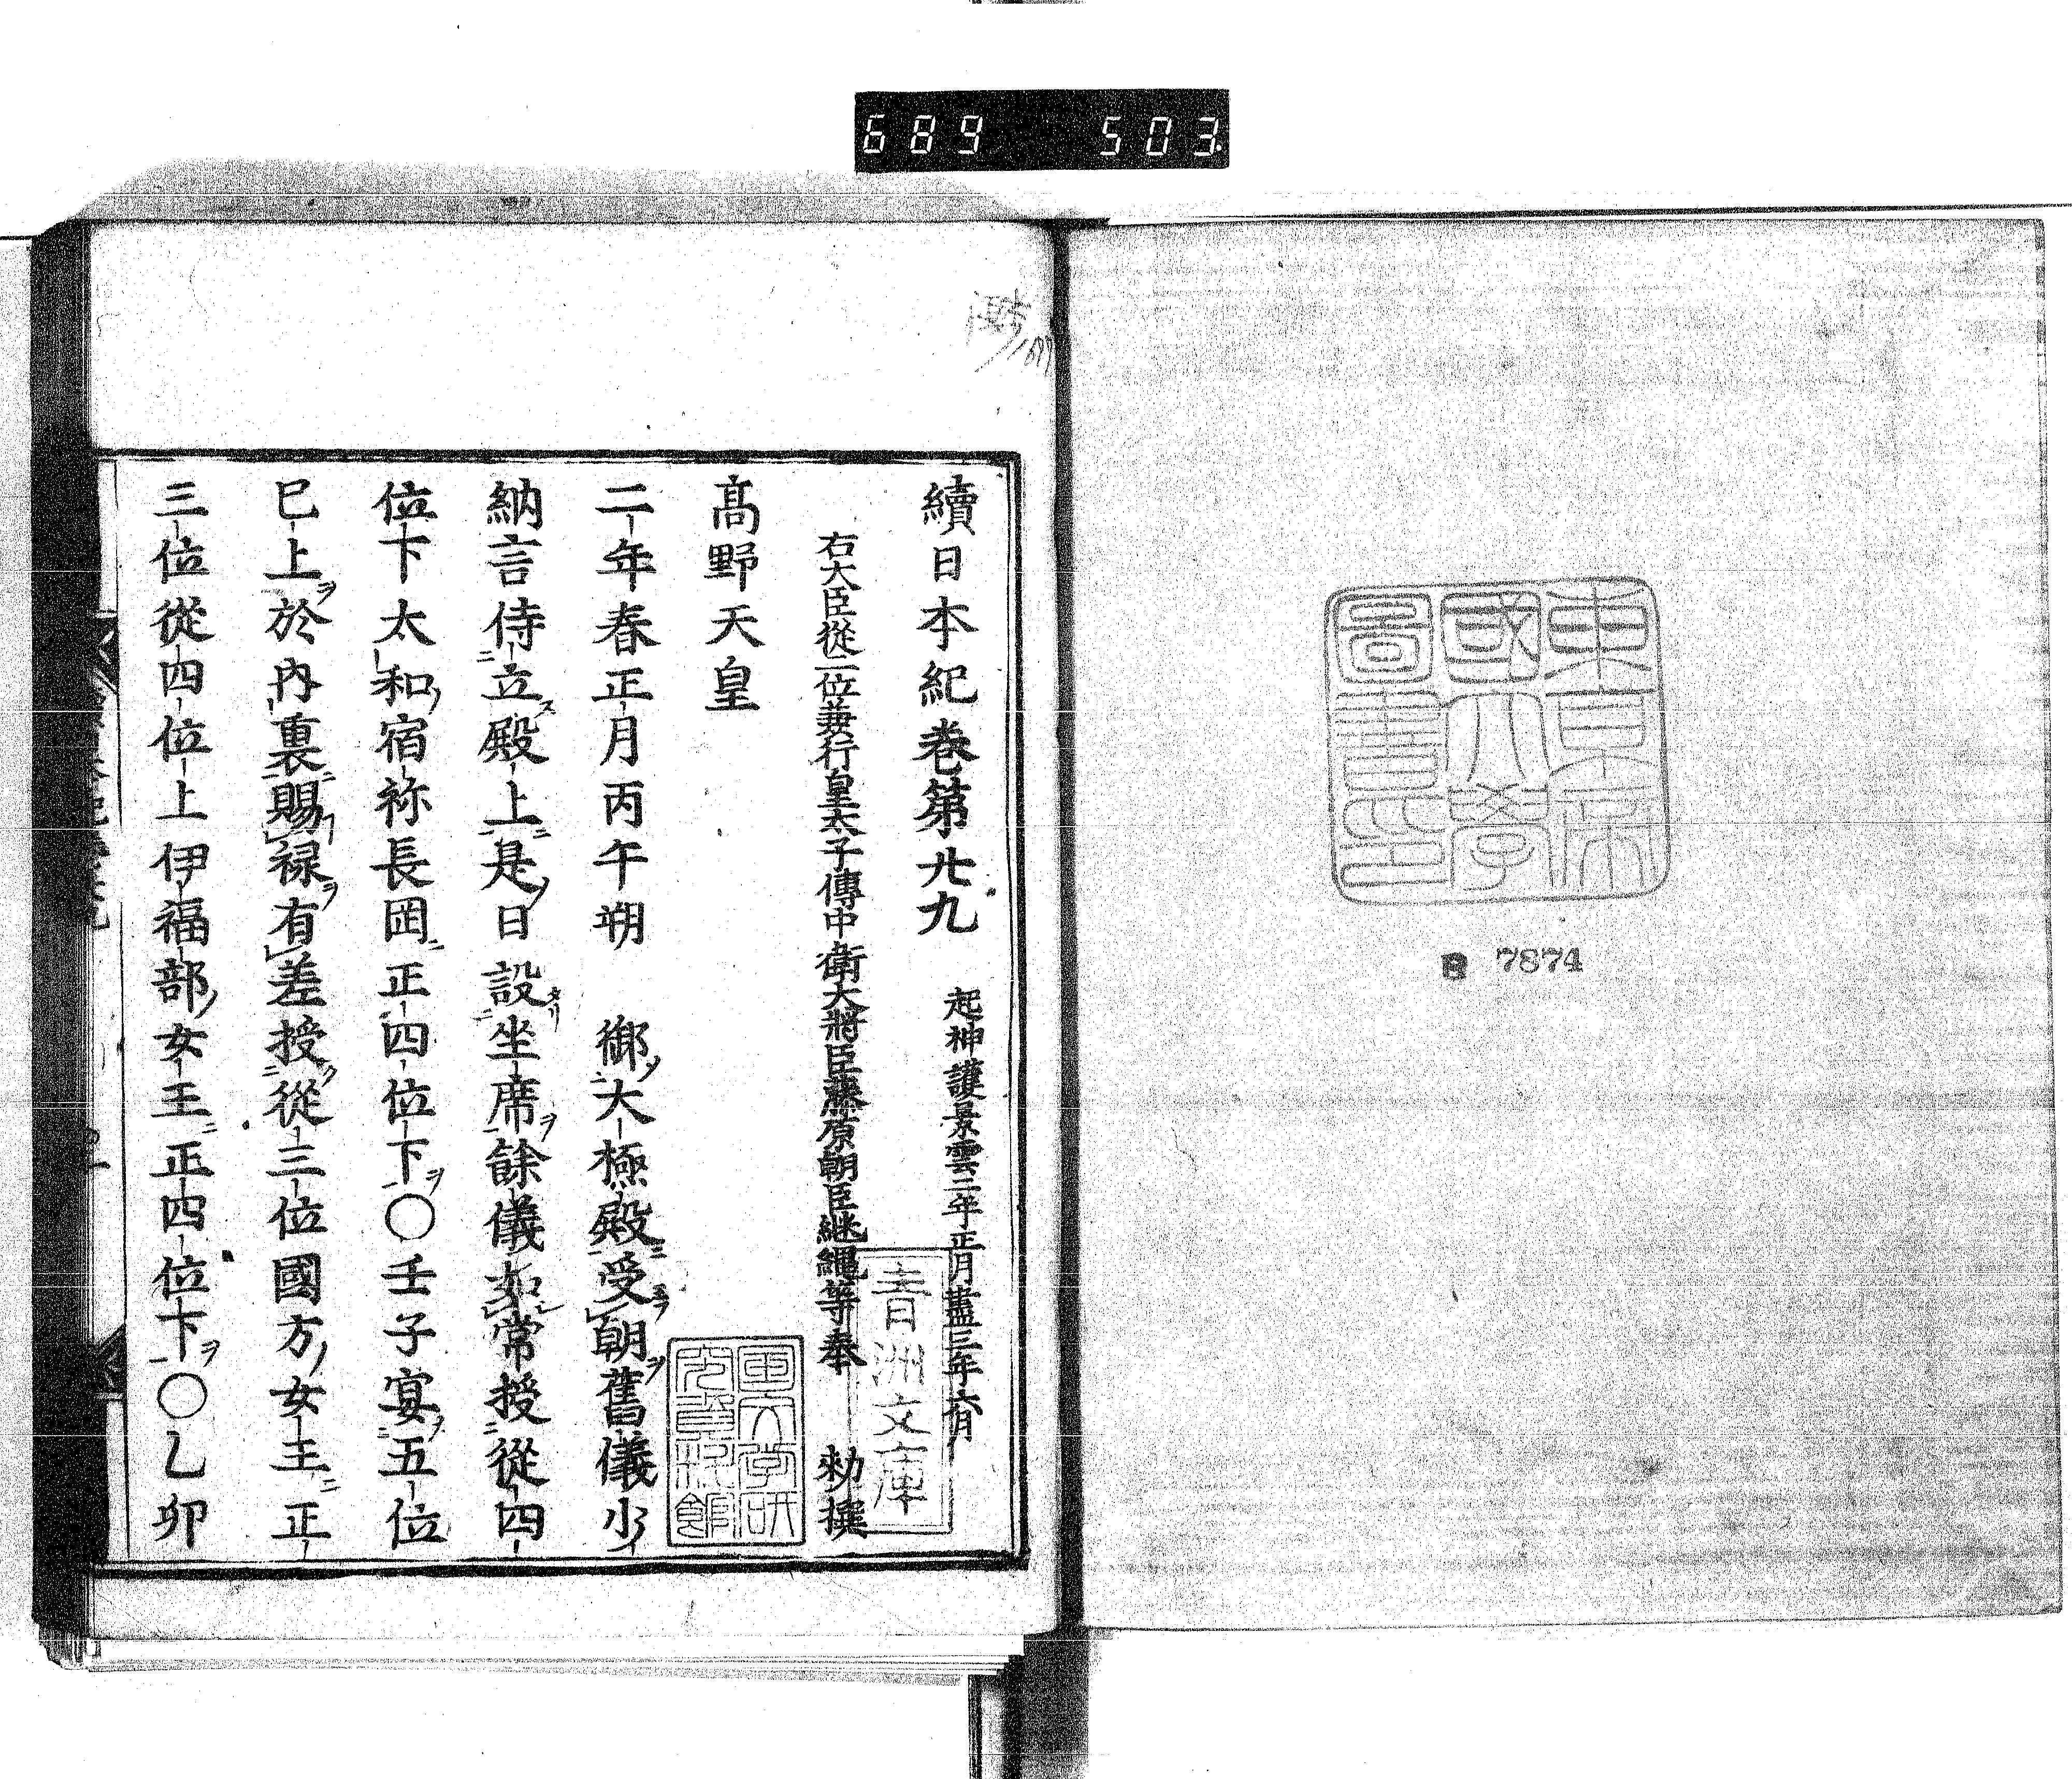 689 503
東京
國大學
圖書之印
7874
續日本紀卷第廿九 起神護景雲二年正月盡三年六月
右大臣從二位兼行皇太子傳中衛大將臣藤原朝臣継縄等奉 勅撰
青洲文庫
髙野天皇
二年春正月丙午朔 御大極殿受朝舊儀少
納言侍立殿上是日設坐席餘儀如常授從四
位下太和宿祢長岡正四位下○壬子宴五位
已上於內裏賜禄有差授從三位國方女王正
三位從四位上伊福部女王正四位下○乙卯